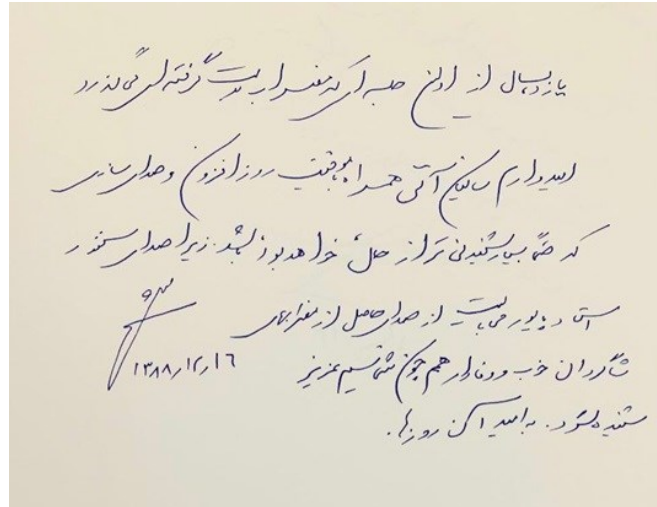 پانزده سال از اولین جلسه ای که مضراب بدست گرفته ای می گذرد
امیدوارم سالیان آتی همراه با موفقیت روز افزون و صدای سازی
که حتماً بسیار شنیدنی تر از حال خواهد بود باشد. زیرا صدای سنتور
استاد پایور می بایست از صدای حاصل از مضرابهای
شاگردان خوب و وفادار همچون شما نسیم عزیز
شنیده شود. به امید آن روزها.
۱۳۸۸,۱۲,۱۶